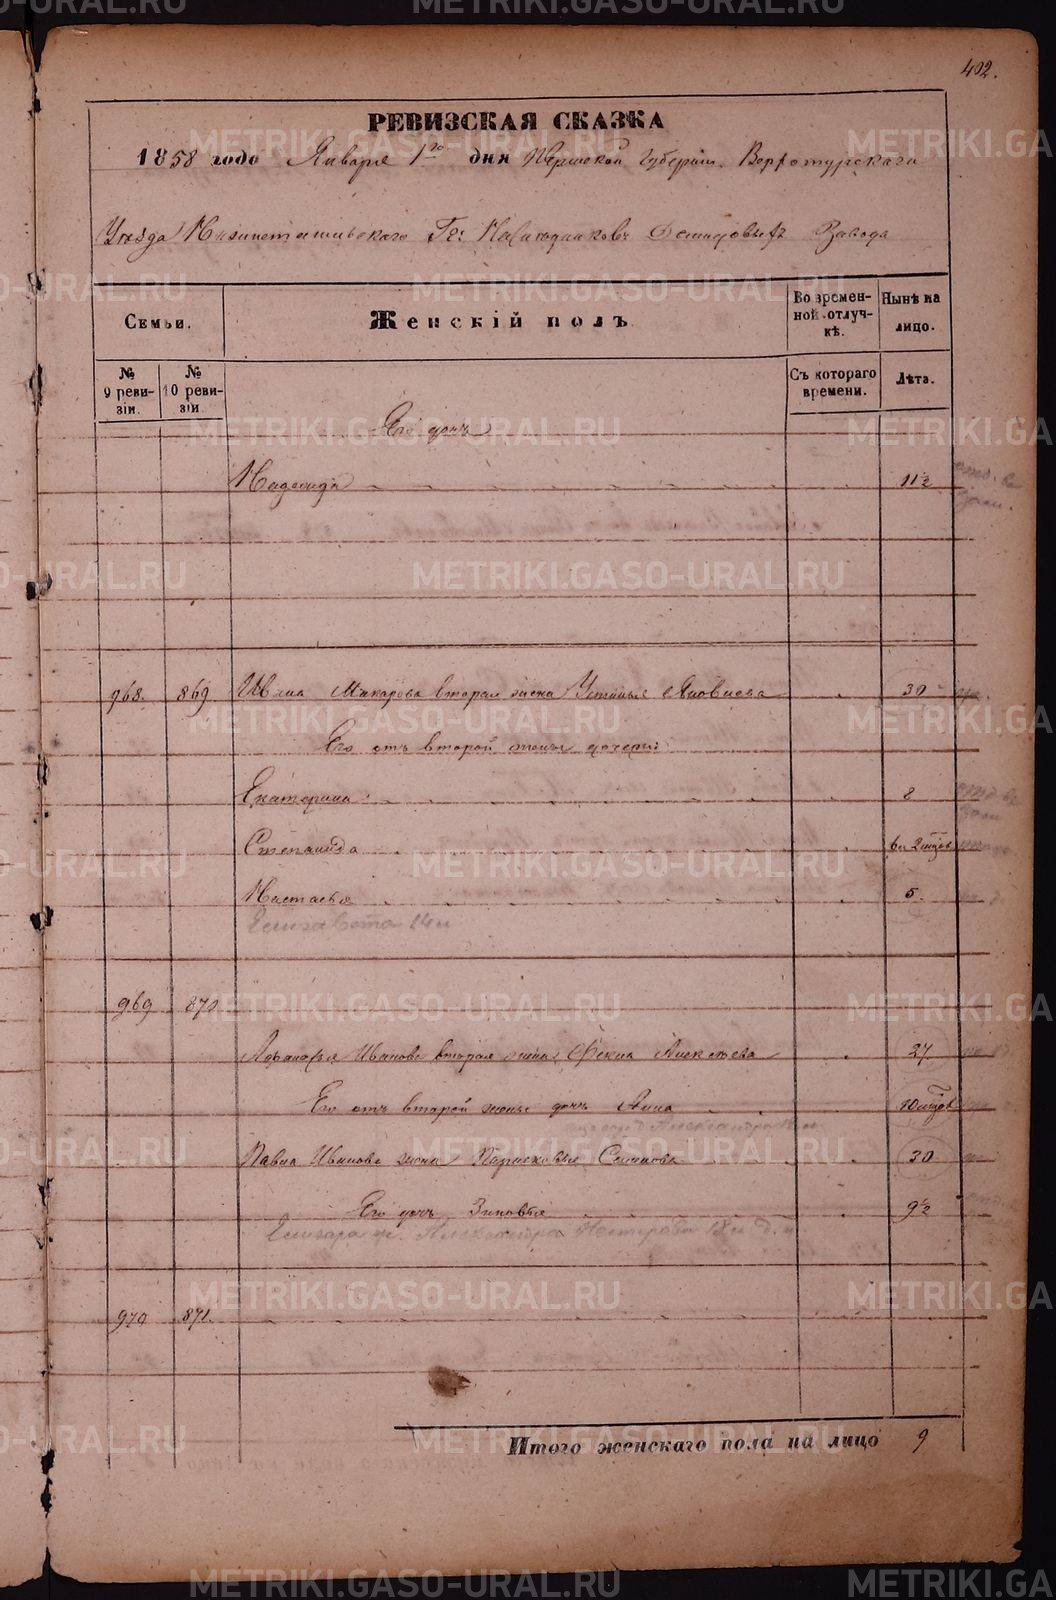 402.
РЕВИЗСКАЯ СКАЗКА
1858 года Января 1го дня Пермской Губернии Верхотурскаго
Уѣзда Нижнетагильскаго Гг: Наслѣдниковъ Демидовыхъ Завода
Семьи.
Женскій полъ
Во времен-
ной отлуч-
кѣ.
Нынѣ на
лицо.
№
9 реви-
зіи.
№
10 реви-
зіи
Съ котораго
времени.
Лѣта.
Его дочь
Надежда 11½
968. 869. Ивана Макарова вторая жена Устинья Яковлева 30
Его отъ второй жены дочери:
Екатерина 8
Степанида 6 и 2 мцов
Настасья 5.
Елизавета 14
969 870
Вторая жена Фекла Алексѣева 27
Его отъ второй жены дочь Анна 10 мцов
Павла Иванова жена Парасковья Семенова 30
Его дочь Зиновья 9½
970 871.
Итого женскаго пола на лицо 9
METRIKI.GASO-URAL.RU